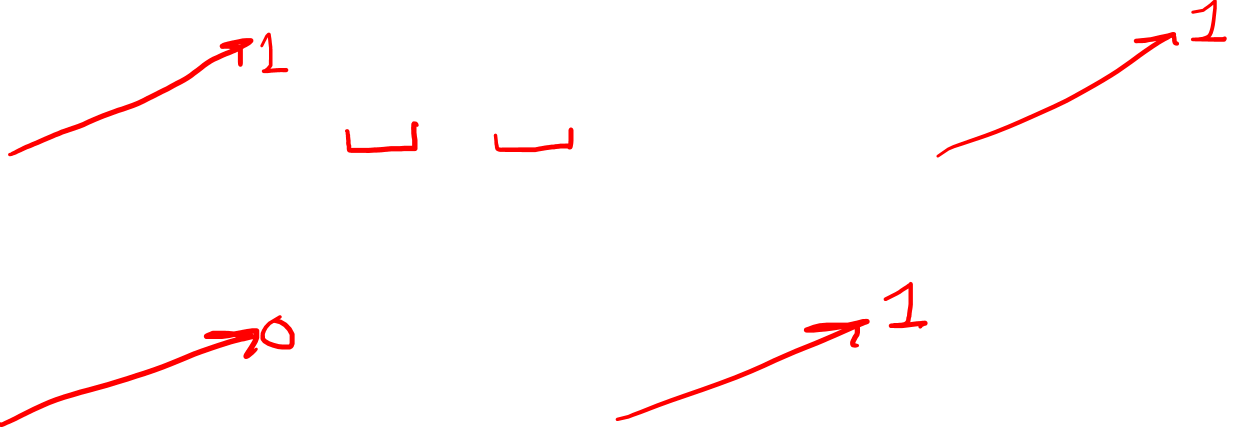 1 1
0 1